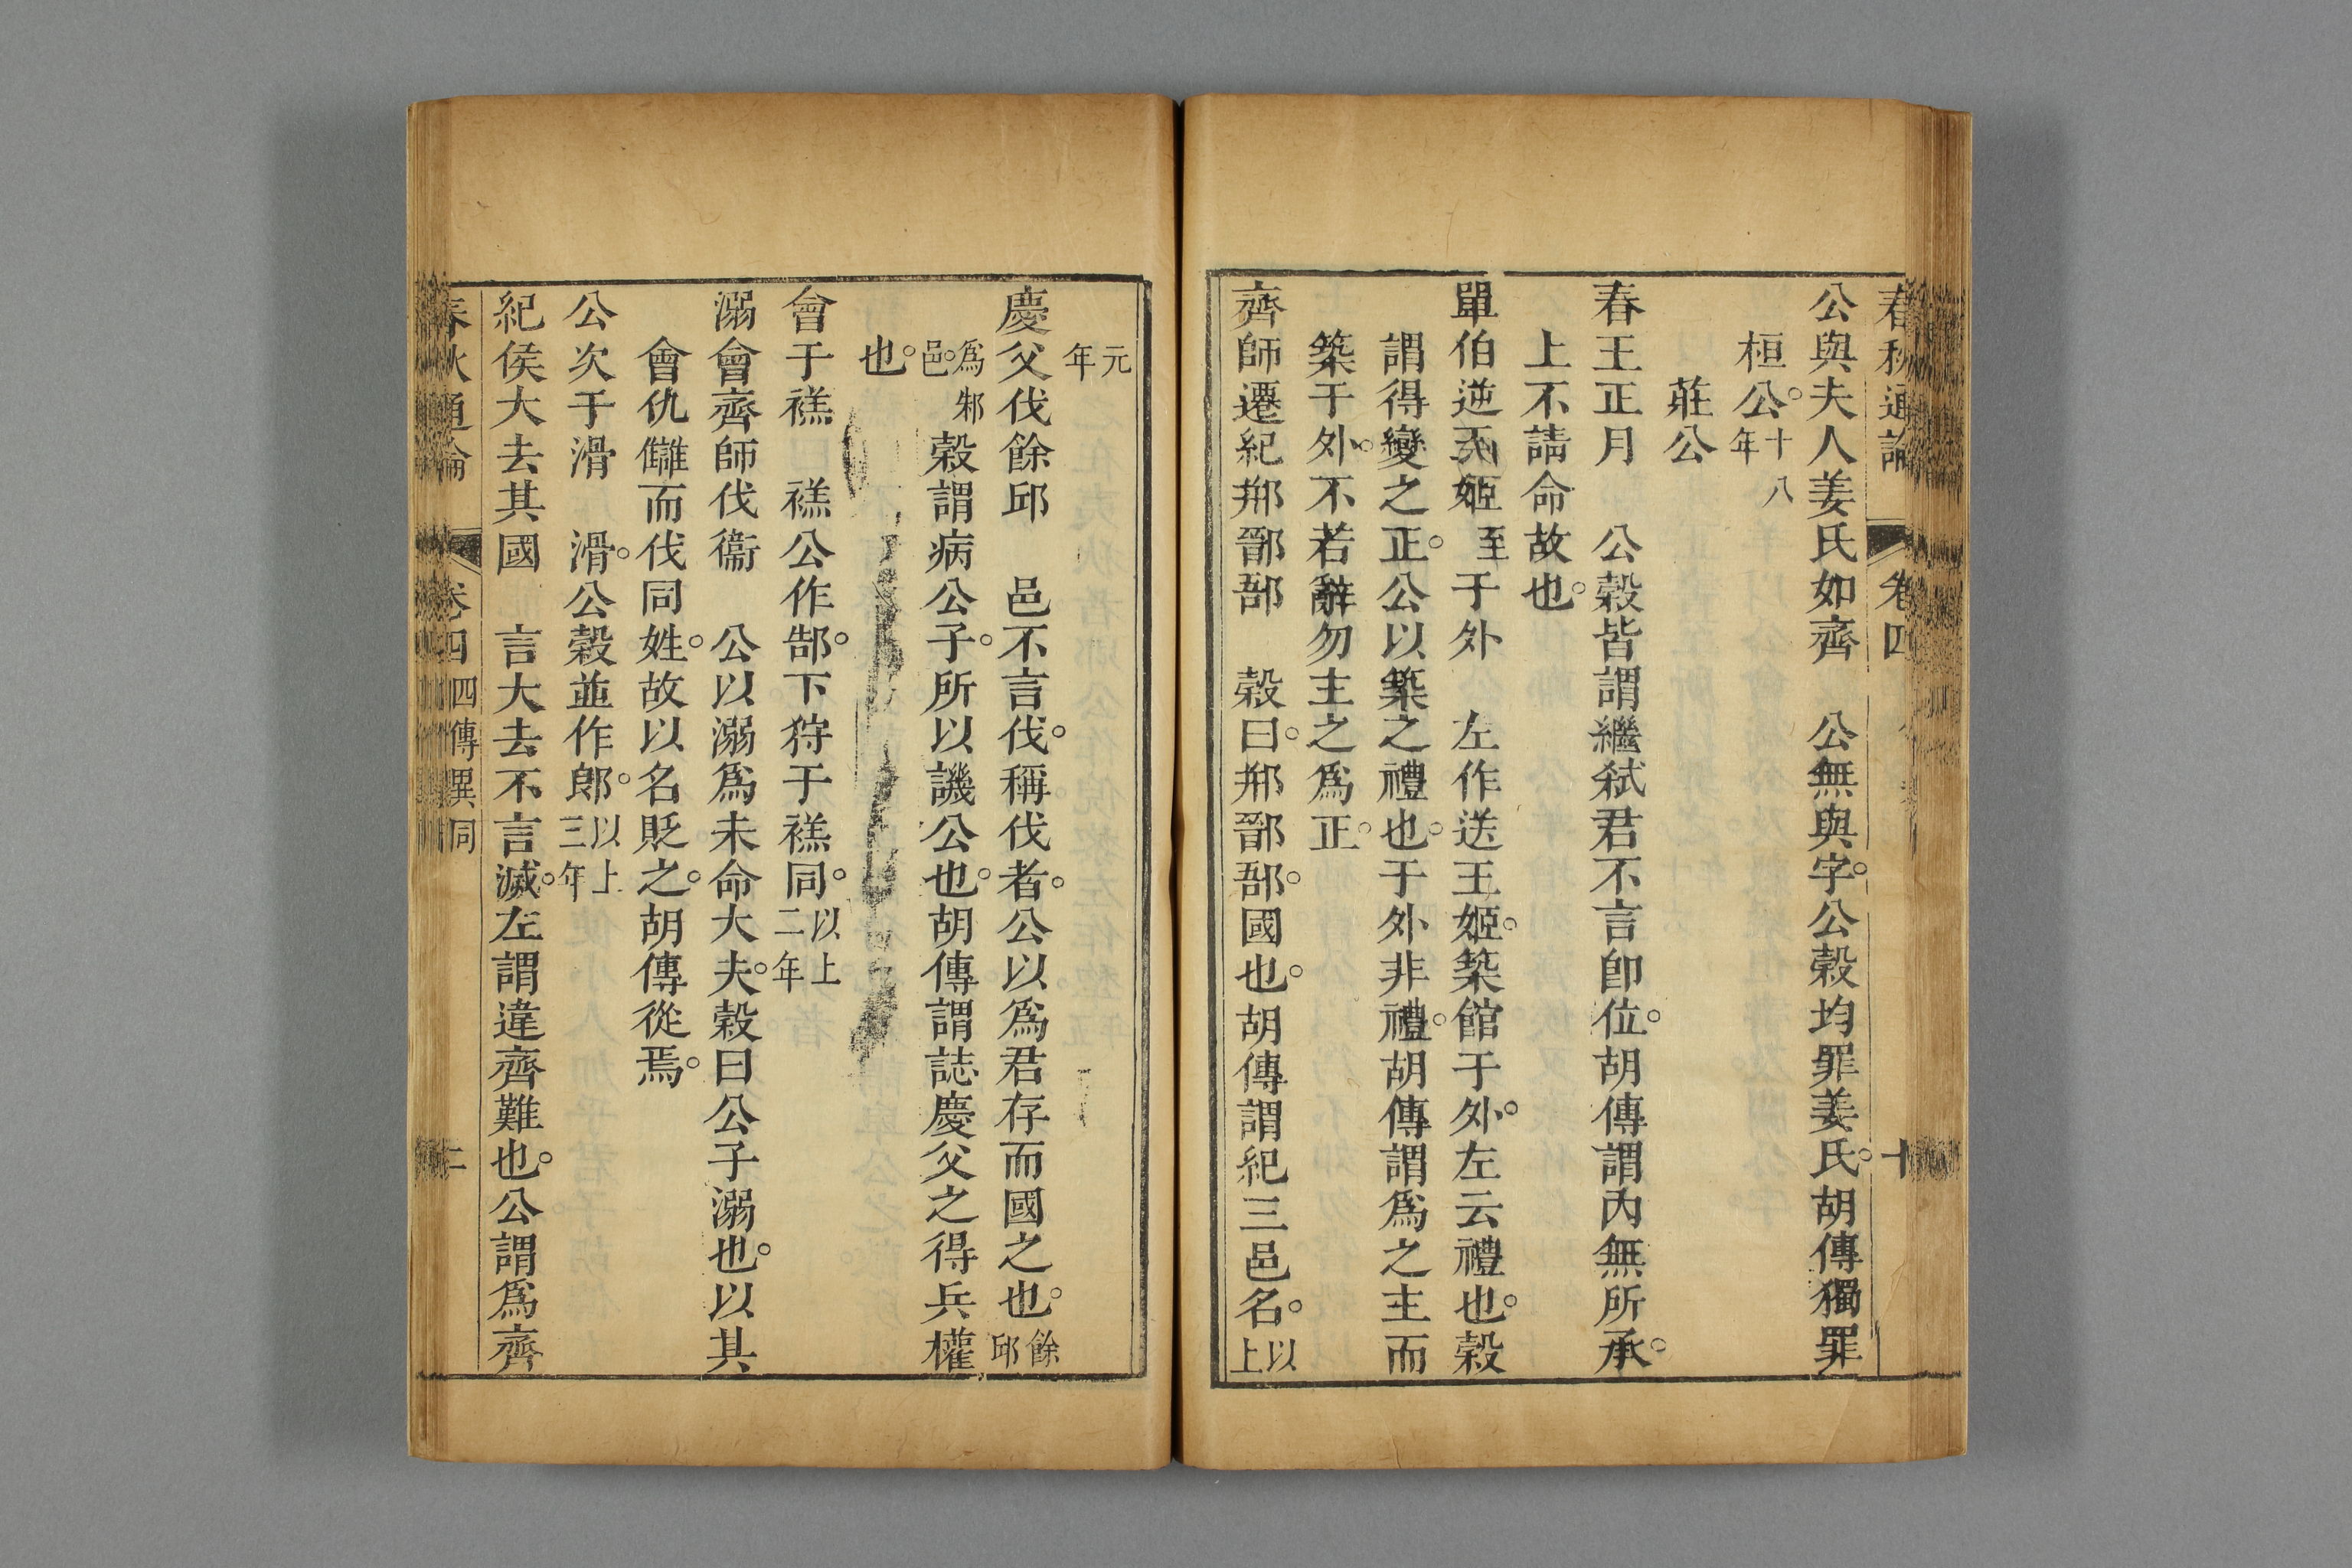 春秋通論 卷四 十
公與夫人姜氏如齊 公無與字公穀均罪姜氏胡傳獨罪
桓公十八年
莊公
春王正月 公穀皆謂繼弒君不言卽位胡傳謂內無所承
上不請命故也
單伯逆王姬至于外 左作送王姬築館于外左云禮也穀
謂得變之正公以築之禮也于外非禮胡傳謂爲之主而
築于外不若辭勿主之爲正
齊師遷紀郱鄑郚 穀曰郱鄑郚國也胡傳謂紀三邑名以上
元年
慶父伐餘邱 邑不言伐稱伐者公以爲君存而國之也餘邱
爲邾邑 穀謂病公子所以譏公也胡傳謂誌慶父之得兵權
也
會于禚 禚公作郜下狩于禚同以上二年
溺會齊師伐衞 公以溺爲未命大夫穀曰公子溺也以其
會仇讎而伐同姓故以名貶之胡傳從焉
公次于滑 滑公穀並作郎以上三年
紀侯大去其國 言大去不言滅左謂違齊難也公謂爲齊
春秋通論 卷四 四傳異同 二